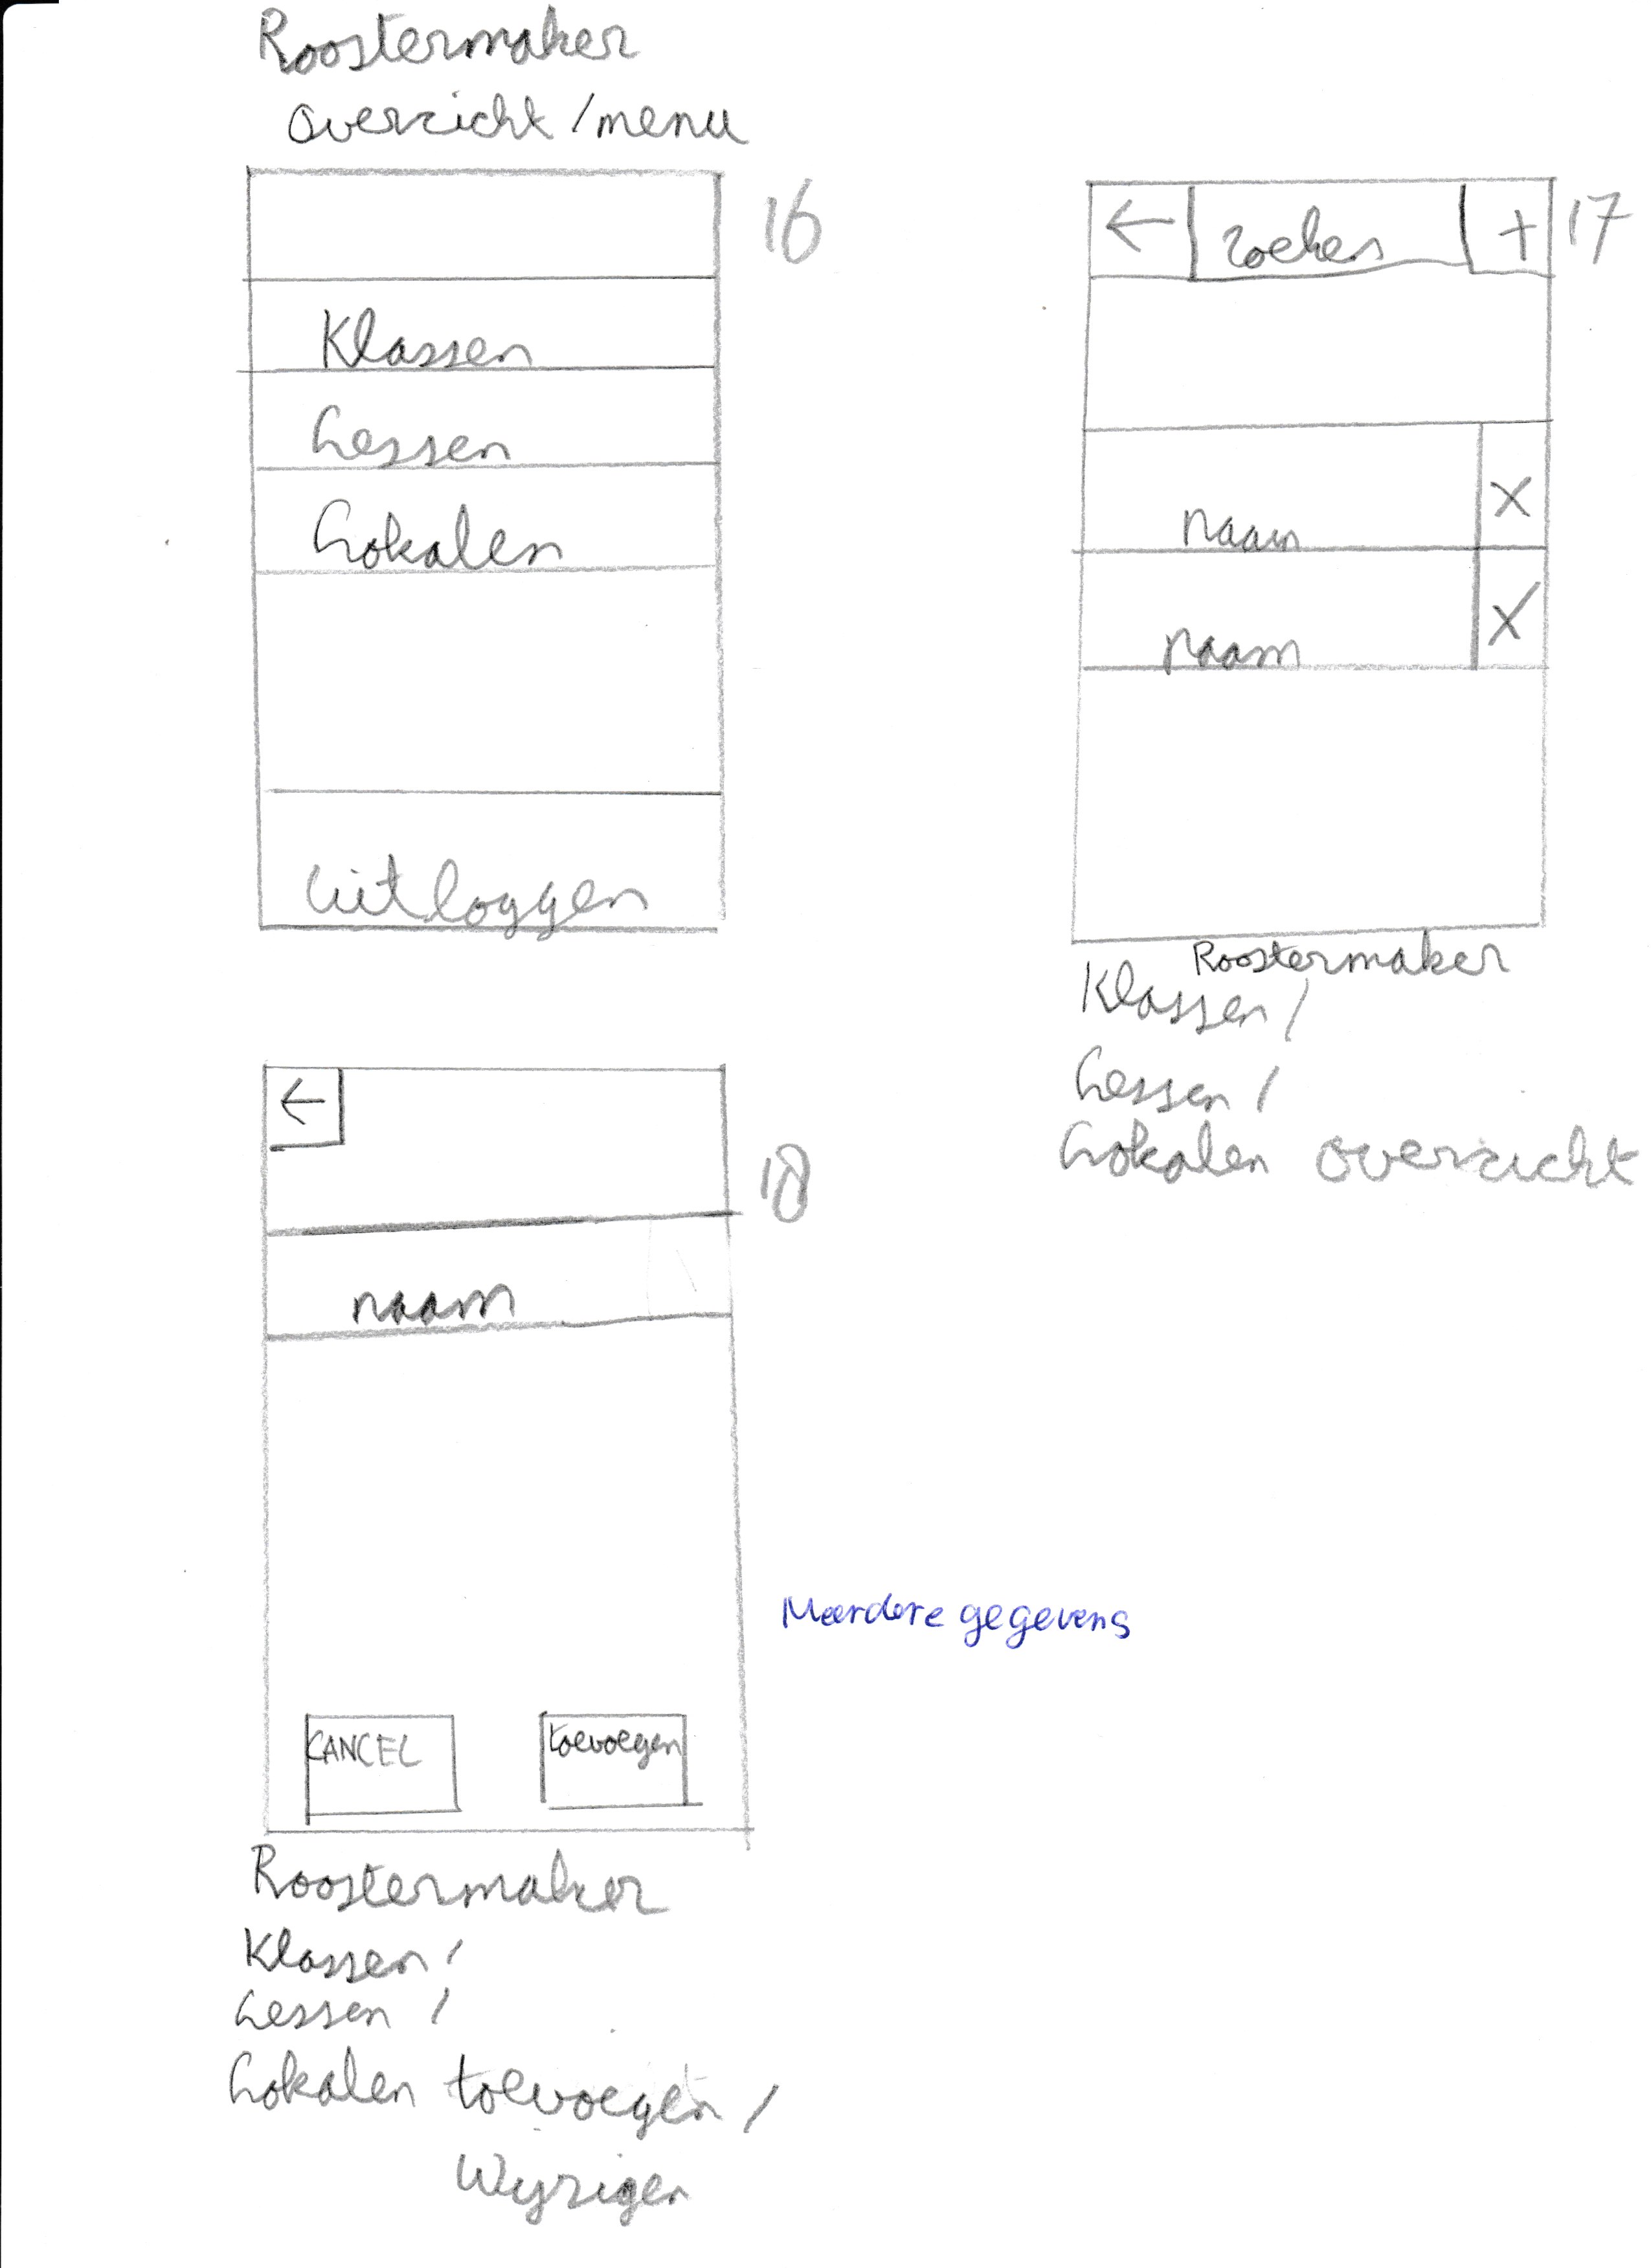 Roostermaker
overzicht / menu
16
Klassen
Lessen
Lokalen
uitloggen
17
← zoeken +
naam X
naam X
Roostermaker
Klassen /
Lessen /
Lokalen overzicht
18
←
naam
Meerdere gegevens
CANCEL toevoegen
Roostermaker
Klassen /
Lessen /
Lokalen toevoegen /
Wijzigen